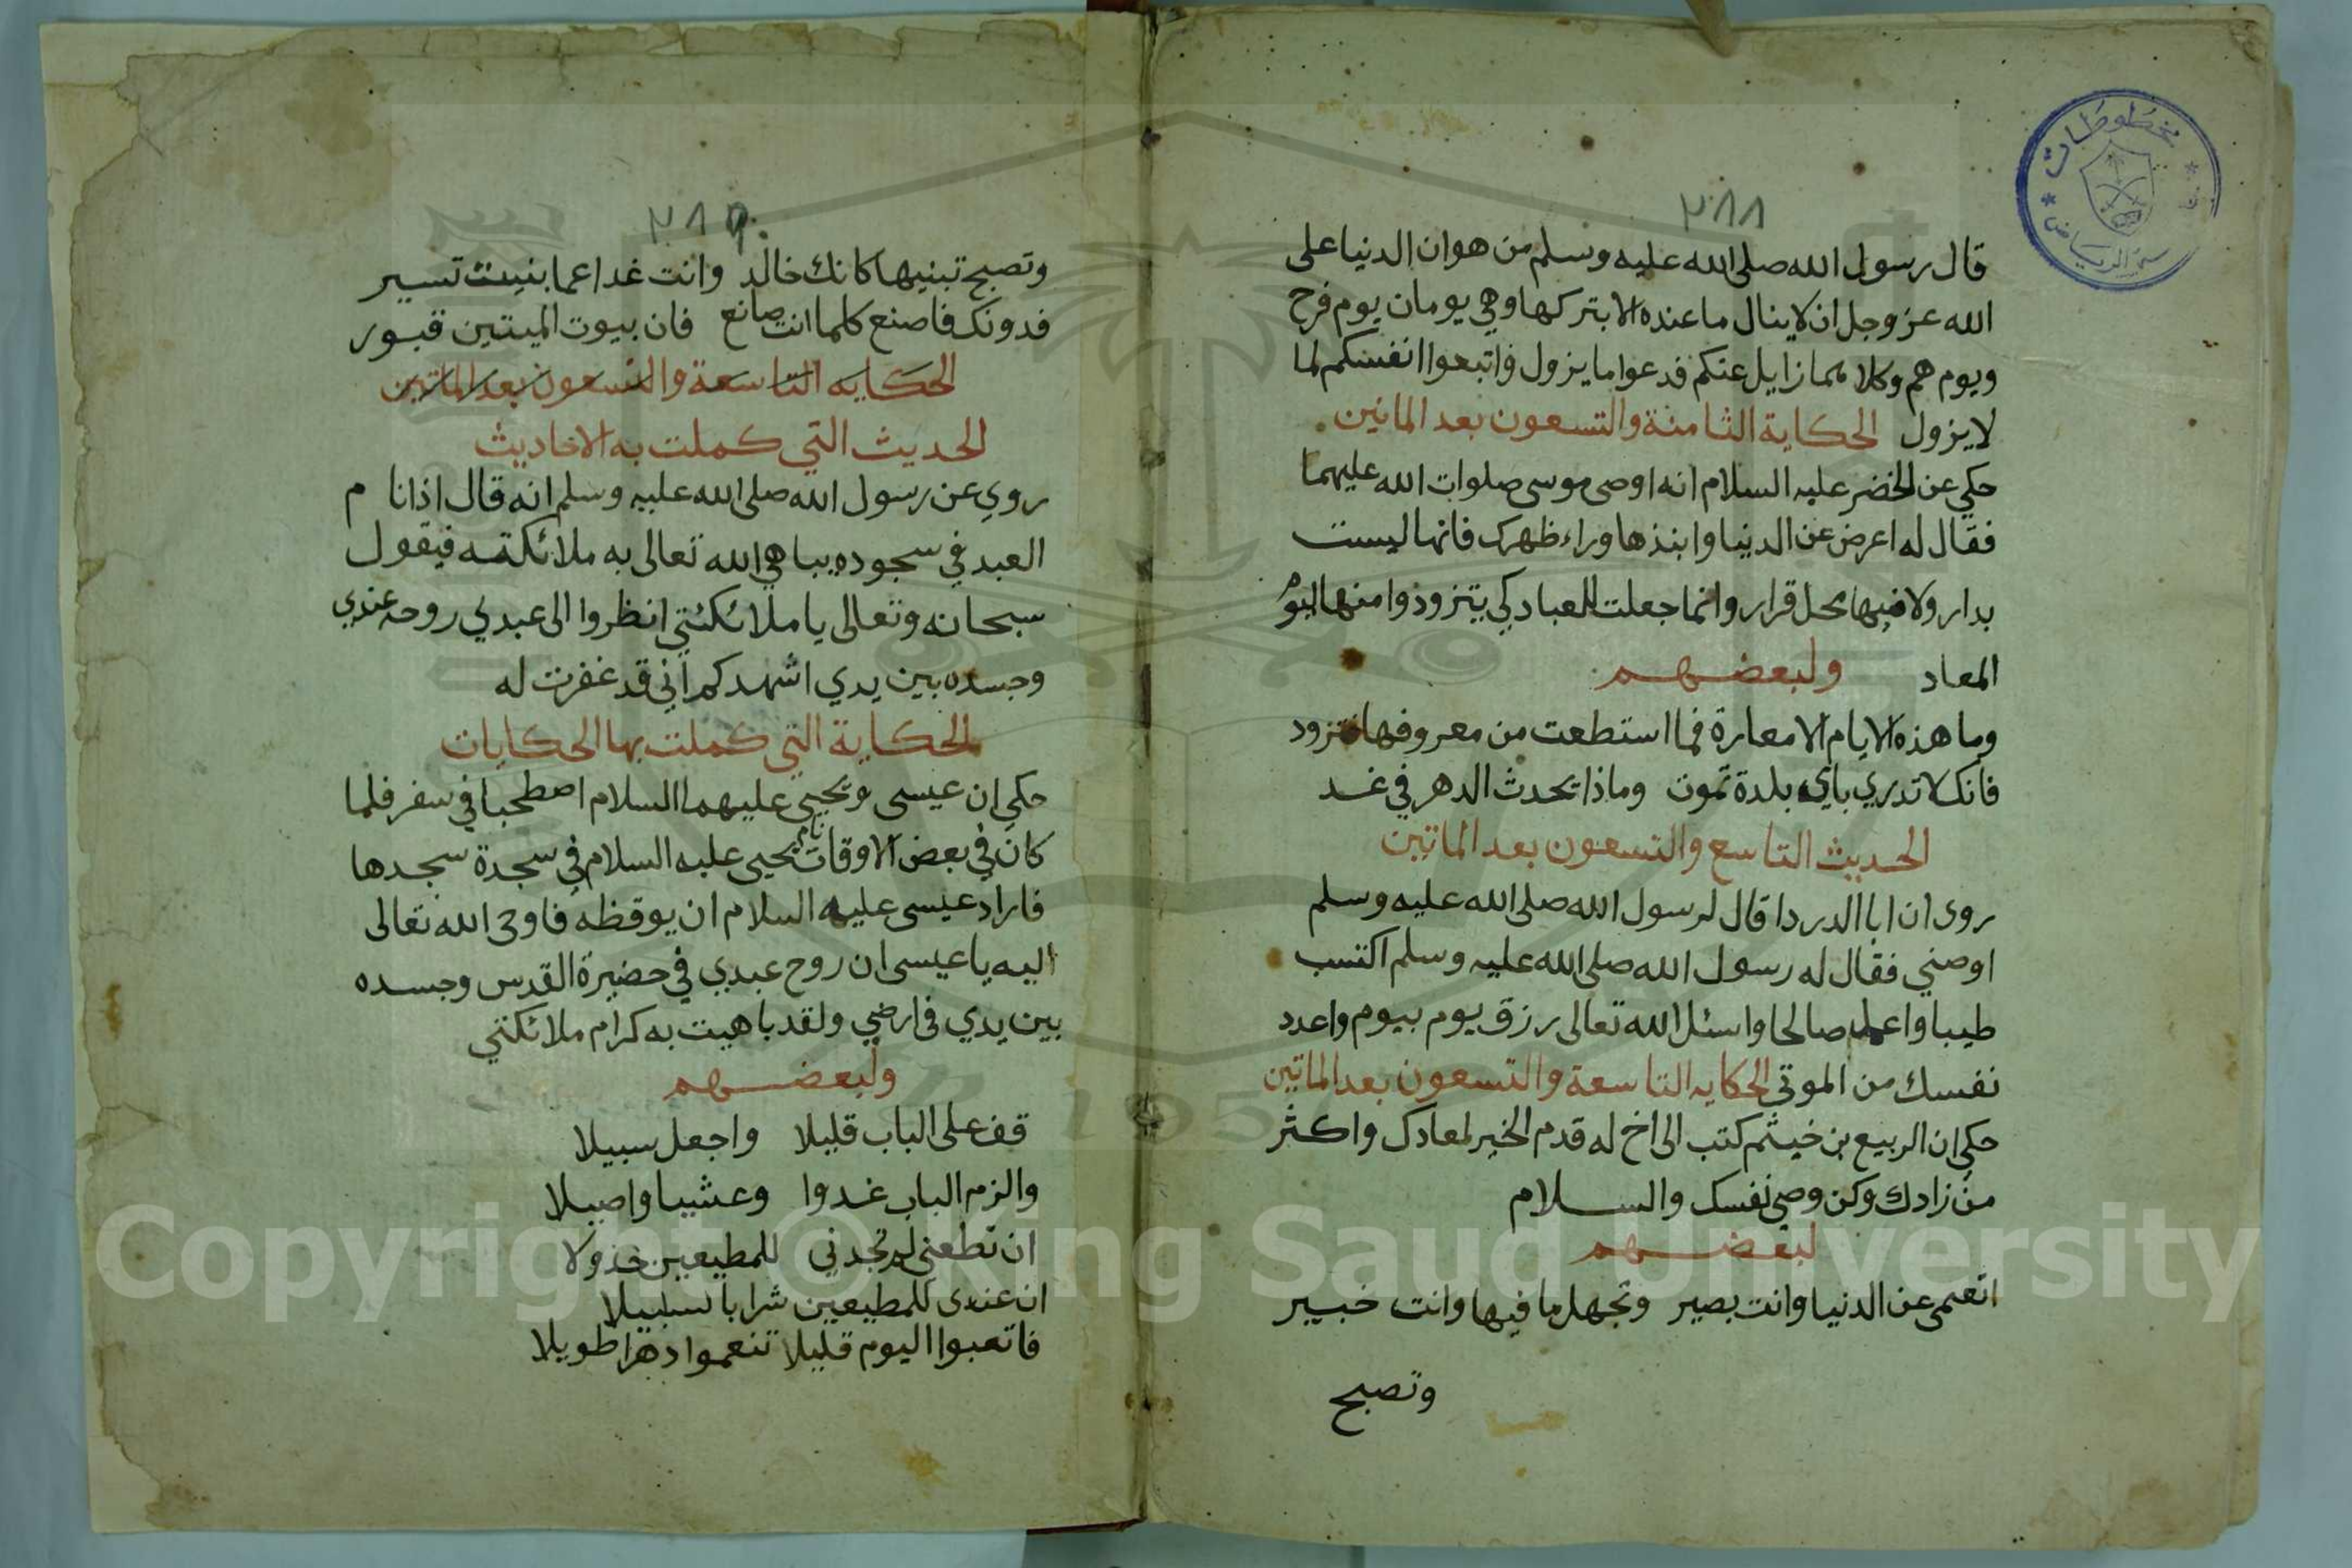 ٣٨٨
قال رسول الله صلى الله عليه وسلم من هوان الدنيا على
الله عز وجل ان لا ينال ما عنده الا بتركها وهي يومان يوم فرح
ويوم هم وكلاهما زايل عنكم فدعوا ما يزول واتبعوا انفسكم لما
لا يزول الحكاية الثامنة والتسعون بعد المائتين
حكي عن الخضر عليه السلام انه اوصى موسى صلوات الله عليهما
فقال له اعرض عن الدنيا وانبذها وراء ظهرك فانها ليست
بدار ولا فيها محل قرار وانما جعلت للعباد كي يتزودوا منها اليوم
المعاد ولبعضهم
وما هذه الايام الا معارة فما استطعت من معروفها فتزود
فانك لا تدري باي بلدة تموت وماذا يحدث الدهر في غد
الحديث التاسع والتسعون بعد المائتين
روى ان ابا الدردا قال لرسول الله صلى الله عليه وسلم
اوصني فقال له رسول الله صلى الله عليه وسلم اكتسب
طيبا واعمل صالحا واسئل الله تعالى رزق يوم بيوم واعدد
نفسك من الموتى الحكايه التاسعة والتسعون بعد المائتين
حكي ان الربيع بن خيثم كتب الى اخ له قدم الخير لمعادك واكثر
من زادك وكن وصي نفسك والسلام
لبعضهم
اتعمى عن الدنيا وانت بصير وتجهل ما فيها وانت خبير
وتصبح
مخطوطات
٣٨٩
وتصبح تبنيها كانك خالد وانت غدا عما بنيت تسير
فدونك فاصنع كلما انت صانع فان بيوت الميتين قبور
الحكايه التاسعة والتسعون بعد المائتين
الحديث التي كملت به الاحاديث
روي عن رسول الله صلى الله عليه وسلم انه قال اذا نا م
العبد في سجوده يباهي الله تعالى به ملائكته فيقول
سبحانه وتعالى يا ملائكتي انظروا الى عبدي روحه عندي
وجسده بين يدي اشهدكم اني قد غفرت له
الحكاية التي كملت بها الحكايات
حكي ان عيسى ويحيى عليهما السلام اصطحبا في سفر فلما
كان في بعض الاوقات نام يحيى عليه السلام في سجدة سجدها
فاراد عيسى عليه السلام ان يوقظه فاوحى الله تعالى
اليه يا عيسى ان روح عبدي في حضيرة القدس وجسده
بين يدي في ارضي ولقد باهيت به كرام ملائكتي
ولبعضهم
قف على الباب قليلا واجعل سبيلا
والزم الباب غدوا وعشيا واصيلا
ان تطعني لم تجدني للمطيعين خذولا
ان عندى للمطيعين شرابا سلسبيلا
فاتعبوا اليوم قليلا تنعموا دهرا طويلا
Copyright © King Saud University